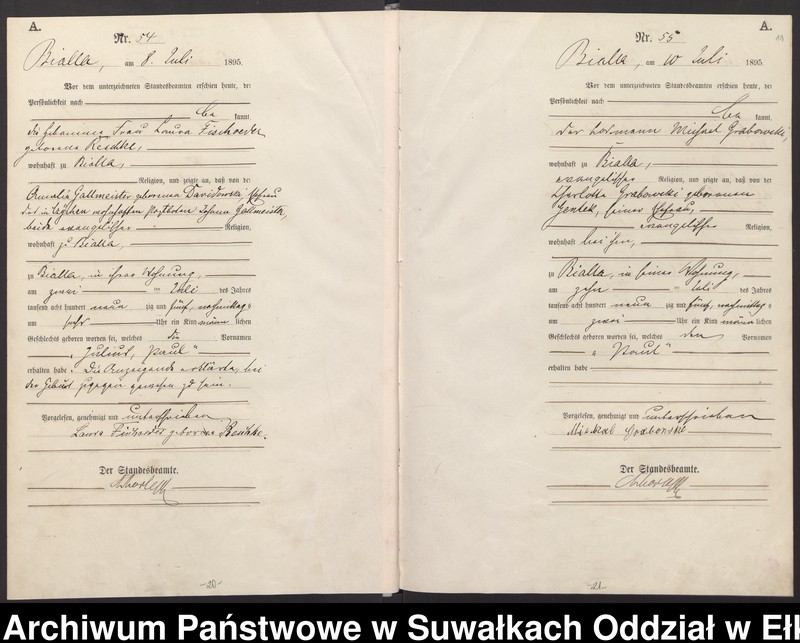 A.
Nr. 54
Bialla, am 8. Juli 1895.
Vor dem unterzeichneten Standesbeamten erschien heute, der
Persönlichkeit nach
be kannt,
die Hebamme Frau Laura Fischoeder
geborene Reschke,
wohnhaft zu Bialla,
Religion, und zeigte an, daß von der
Amalia Gallmeister geborenen Davidowski Ehefrau
des in wohnhaften Johann Gallmeister,
beide evangelischer Religion,
wohnhaft zu Bialla,
zu Bialla, in ihrer Wohnung,
am zwei ten Juli des Jahres
tausend acht hundert neun zig und fünf, nachmittags
um Uhr ein Kind männ lichen
Geschlechts geboren worden sei, welches die Vornamen
„Julius, Paul“
erhalten habe. Die Anzeigende erklärte, bei
der Geburt zugegen gewesen zu sein.
Vorgelesen, genehmigt und unterschrieben
Laura Fischoeder geborene Reschke.
Der Standesbeamte.
-20-
A.
Nr. 55
Bialla, am 10 Juli 1895.
Vor dem unterzeichneten Standesbeamten erschien heute, der
Persönlichkeit nach
be kannt,
der Losmann Michael Grabowski,
wohnhaft zu Bialla,
evangelischer Religion, und zeigte an, daß von der
Charlotte Grabowski geborenen
Gentek, seiner Ehefrau,
evangelischer Religion,
wohnhaft bei ihm,
zu Bialla, in seiner Wohnung,
am zehn ten Juli des Jahres
tausend acht hundert neun zig und fünf, nachmittags
um zwei Uhr ein Kind männ lichen
Geschlechts geboren worden sei, welches den Vornamen
„Paul“
erhalten habe
Vorgelesen, genehmigt und unterschrieben
Michael Grabowski
Der Standesbeamte.
-21-
Archiwum Państwowe w Suwałkach Oddział w Eł